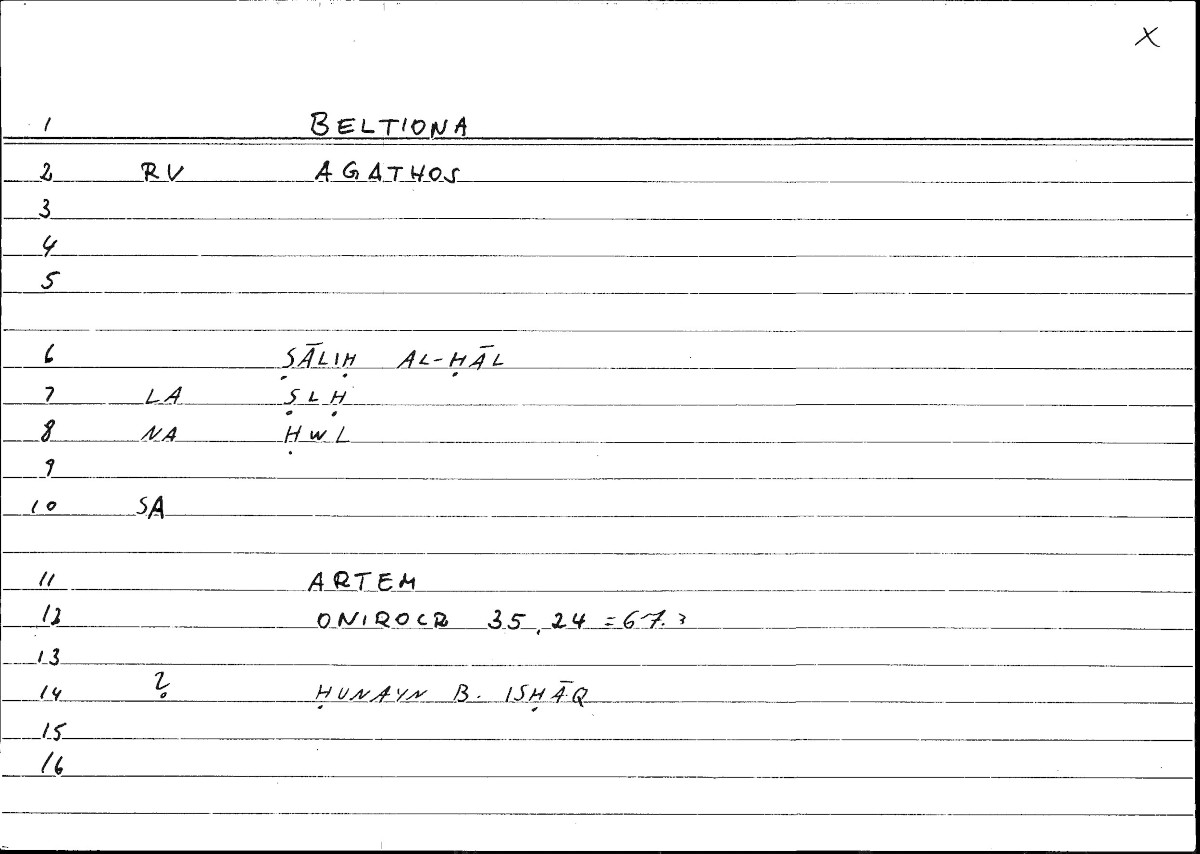 X
1 BELTIONA
2 RV AGATHOS
3
4
5
6 ṢĀLIḤ AL-ḤĀL
7 LA ṢLḤ
8 NA ḤWL
9
10 SA
11 ARTEM
12 ONIROCR 35,24 = 67.3
13
14 ? ḤUNAYN B. ISḤĀQ
15
16